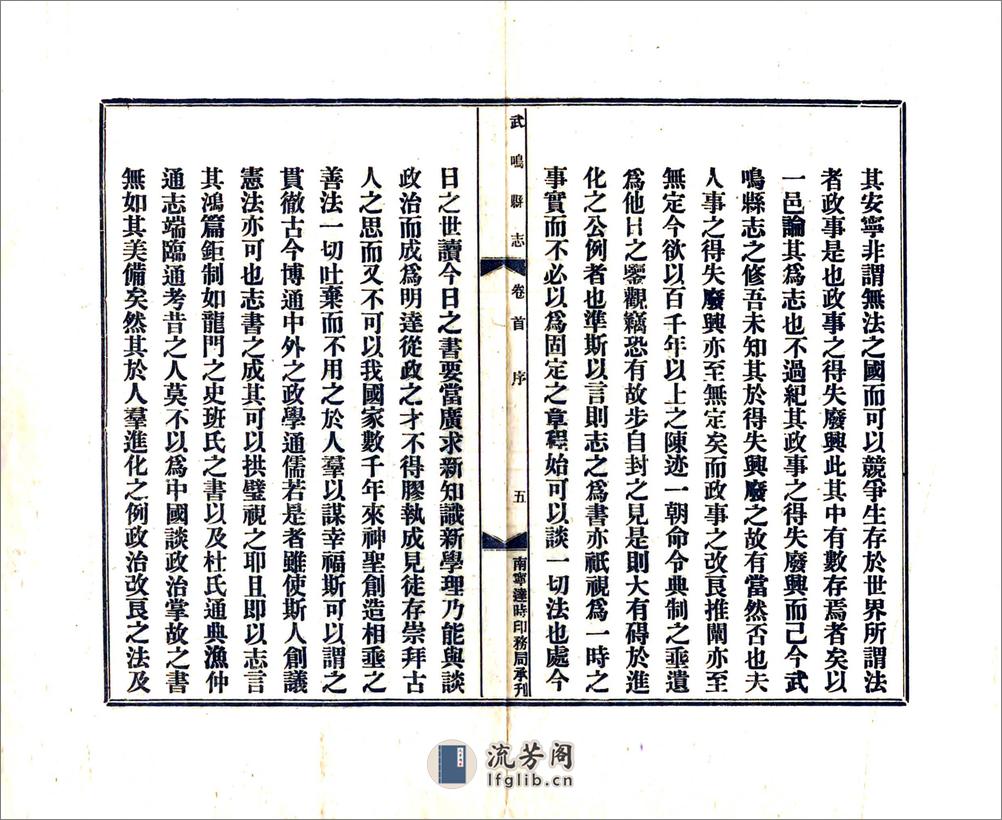 其安寧非謂無法之國而可以競爭生存於世界所謂法
者政事是也政事之得失廢興此其中有數存焉者矣以
一邑論其為志也不過紀其政事之得失廢興而已今武
鳴縣志之修吾未知其於得失興廢之故有當然否也夫
人事之得失廢興亦至無定矣而政事之改良推闡亦至
無定今欲以百千年以上之陳迹一朝命令典制之垂遺
為他日之鑒觀竊恐有故步自封之見是則大有碍於進
化之公例者也準斯以言則志之為書亦祇視為一時之
事實而不必以為固定之章程始可以談一切法也處今
武鳴縣志 卷首 序 五 南寧達時印務局承刊
日之世讀今日之書要當廣求新知識新學理乃能與談
政治而成為明達從政之才不得膠執成見徒存崇拜古
人之思而又不可以我國家數千年來神聖創造相垂之
善法一切吐棄而不用之於人羣以謀幸福斯可以謂之
貫徹古今博通中外之政學通儒若是者雖使斯人創議
憲法亦可也志書之成其可以拱璧視之耶且即以志言
其鴻篇鉅制如龍門之史班氏之書以及杜氏通典漁仲
通志端臨通考昔之人莫不以為中國談政治掌故之書
無如其美備矣然其於人羣進化之例政治改良之法及
流芳阁
lfglib.cn